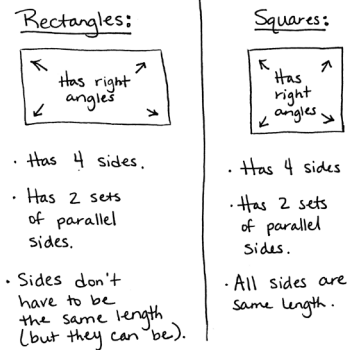 Rectangles:
Has right
angles
• Has 4 sides.
• Has 2 sets
of parallel
sides.
• Sides don't
have to be
the same length
(but they can be).
Squares:
Has
right
angles
• Has 4 sides
• Has 2 sets
of parallel
sides.
• All sides are
same length.